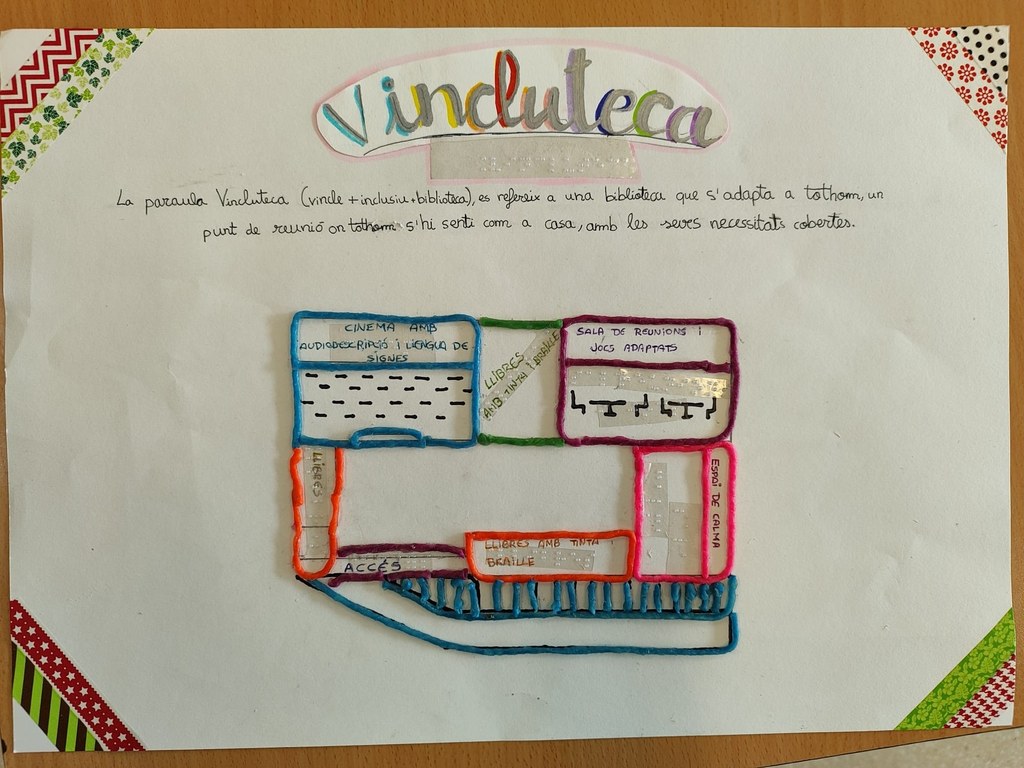 Vincluteca
La paraula Vincluteca (vincle + inclusiu + biblioteca), es refereix a una biblioteca que s'adapta a tothom, un
punt de reunió on tothom s'hi senti com a casa, amb les seves necessitats cobertes.
CINEMA AMB
AUDIODESCRIPCIÓ I LLENGUA DE
SIGNES
LLIBRES
AMB TINTA I BRAILLE
SALA DE REUNIONS I
JOCS ADAPTATS
LLIBRES
ESPAI DE CALMA
LLIBRES AMB TINTA
BRAILLE
ACCÉS